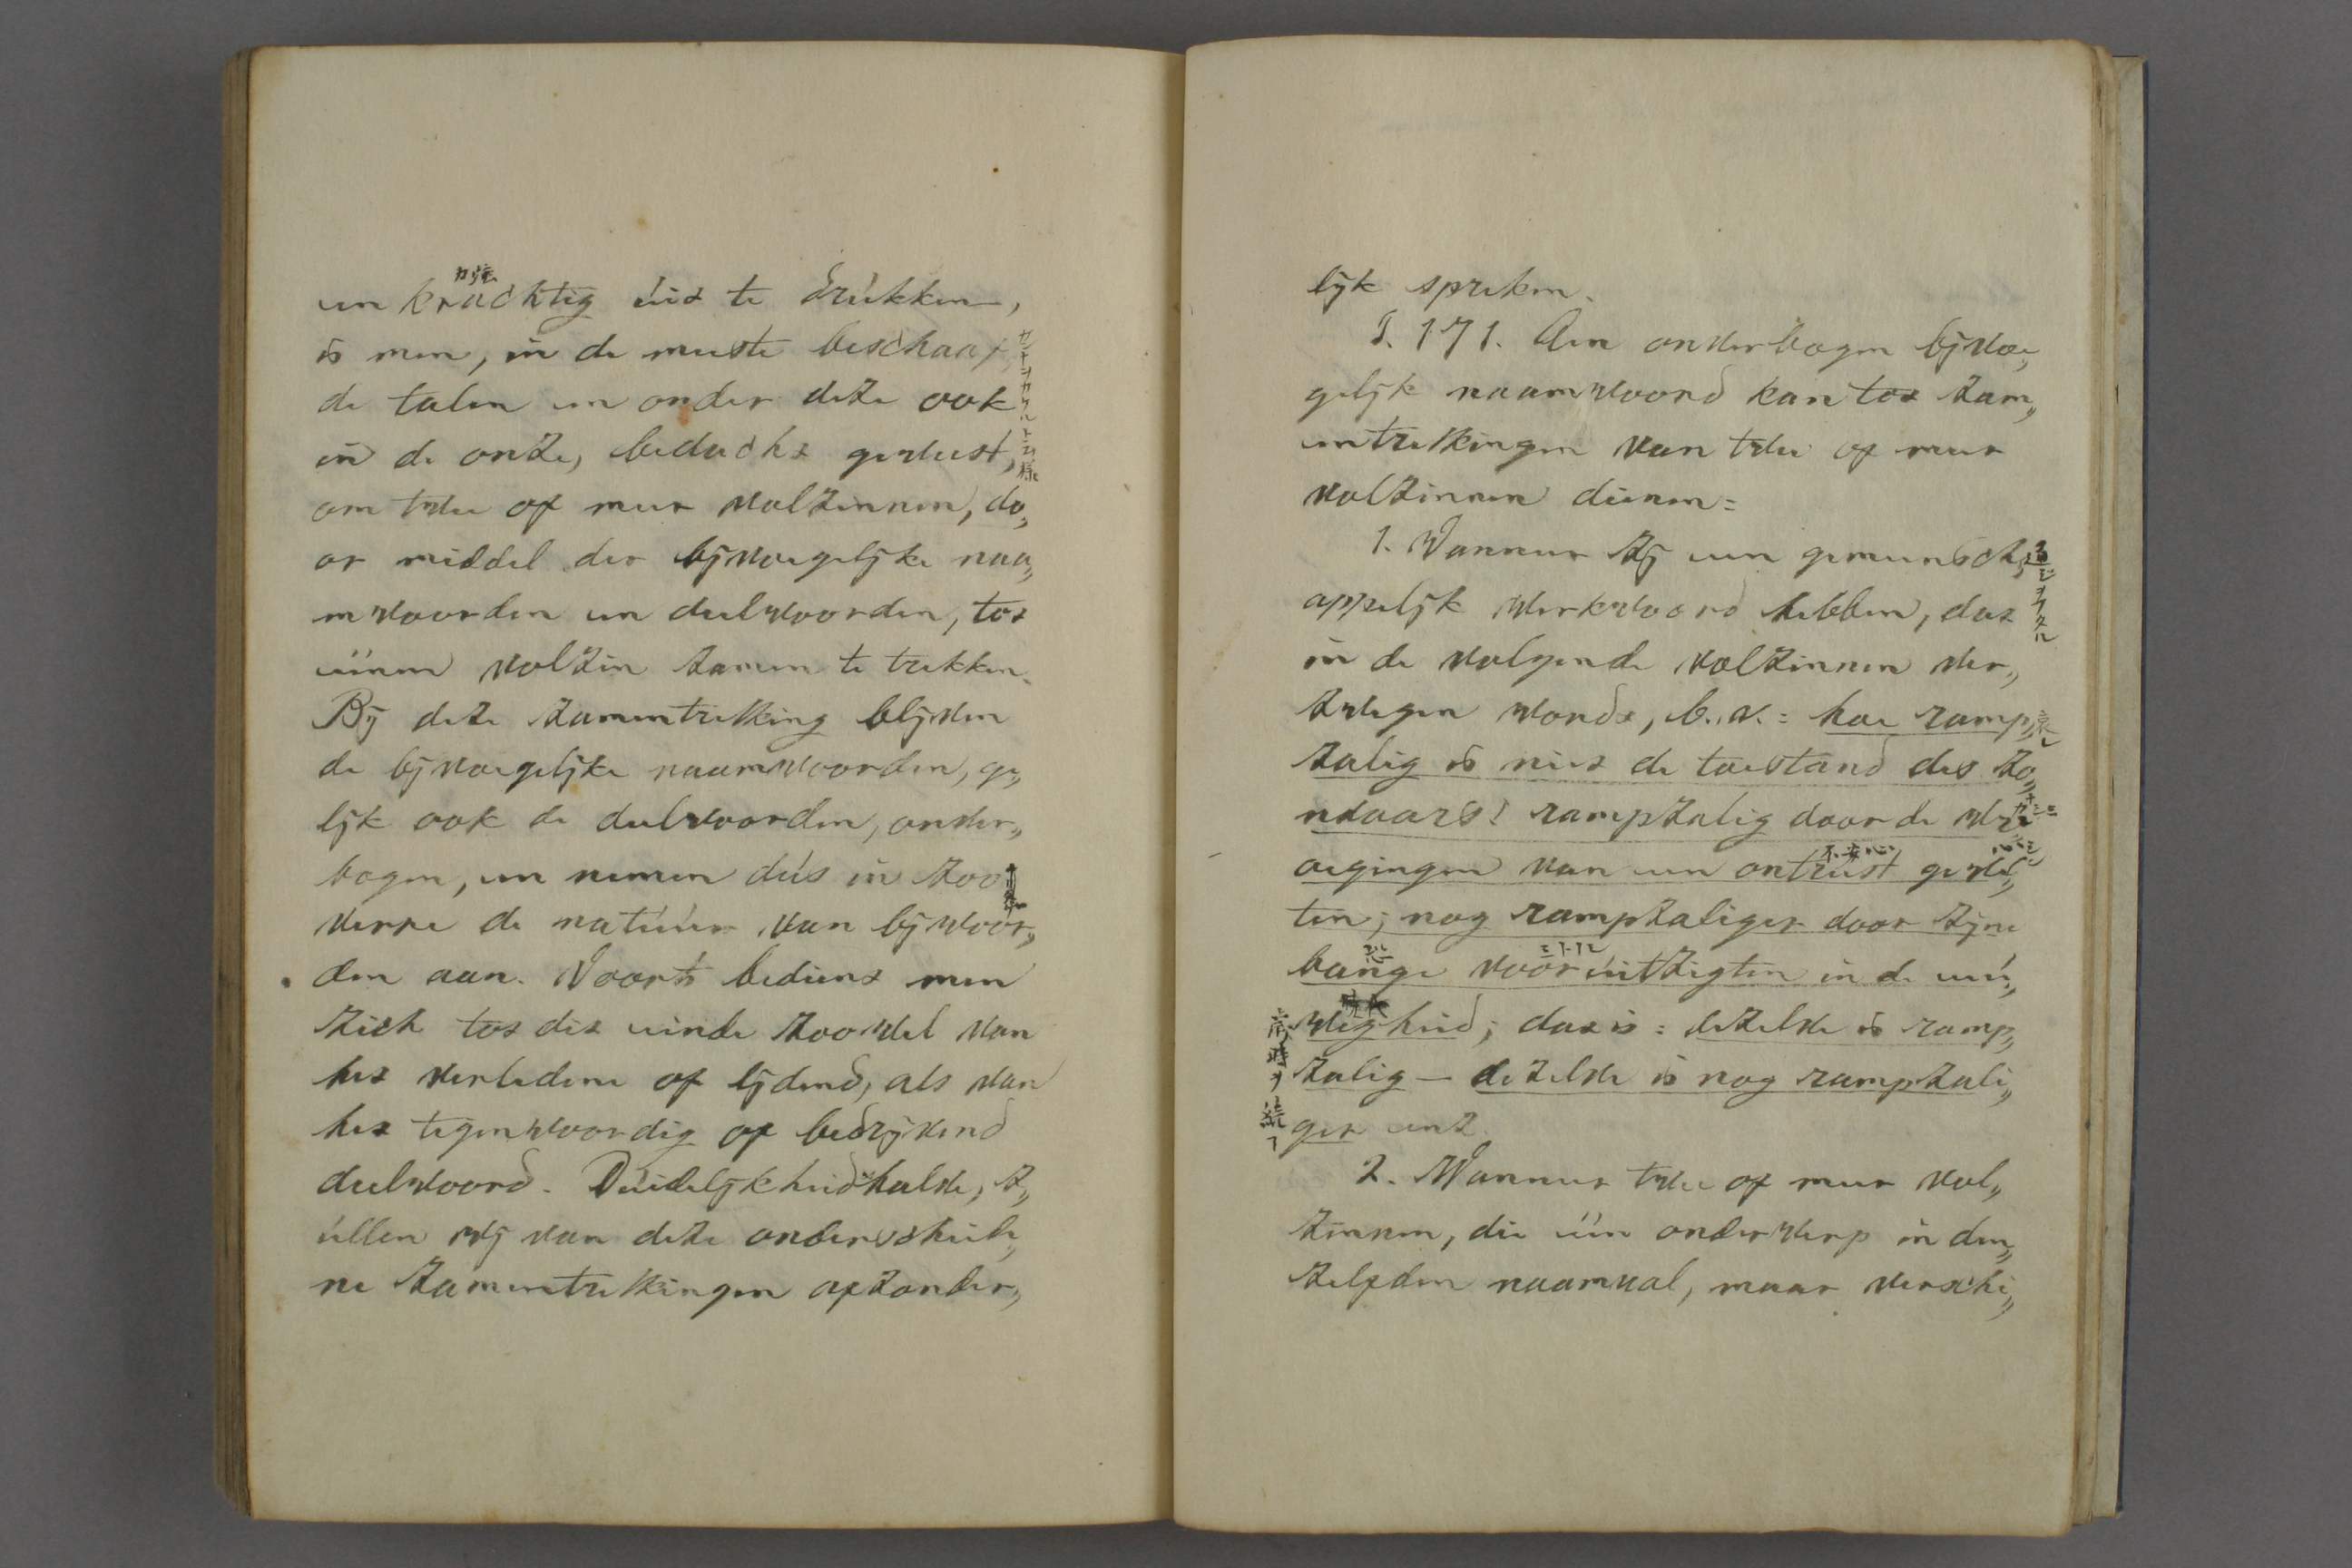 en krachtig úit te drúkken,
is men, in de meeste beschaaf„
de talen en onder deze ook
in de onze, bedacht geweest,
om twee of meer volzinnen, do„
or middel der bijvoegelijke naa„
mwoorden en deelwoorden, tot
éénen volzin zamen te trekken.
Bij deze zamentrekking blijven
de bijvoegelijke naamwoorden, ge„
lijk ook de deelwoorden, onver„
bogen, en nemen dús in zoo
verre de natúúr van bijwoor„
den aan. Voorts bedient men
zich tot dit einde zoo wel van
het verledene of lijdend, als van
het tegenwoordig of bedrijvend
deelwoord. Dúidelijkheidshalve, z„
úllen wij van deze onderscheide„
ne zamentrekkingen afzonder„
lijk spreken.
§. 171. Een onverbogen bijvoe„
gelijk naamwoord kan tot zam„
entrekkingen van twee of meer
volzinnen dienen:
1. Wanneer zij een gemeensch„
appelijk werkwoord hebben, dat
in de volgende volzinnen ver„
zwegen wordt, b. v.: hoe ramp„
zalig is niet de toestand des zo„
ndaars! rampzalig door de wr„
oegingen van een ontrúst gewe„
ten; nog rampzaliger door zijne
bange voorúitzigten in de eeú„
wigheid; dat is: dezelve is ramp„
zalig — dezelve is nog rampzali„
ger enz.
2. Wanneer twee of meer vol„
zinnen, die één onderwerp in den„
zelfden naamval, maar verschi„